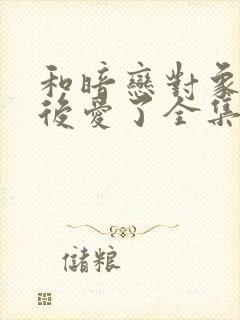 和暗戀對象
後愛了全集
儲粮